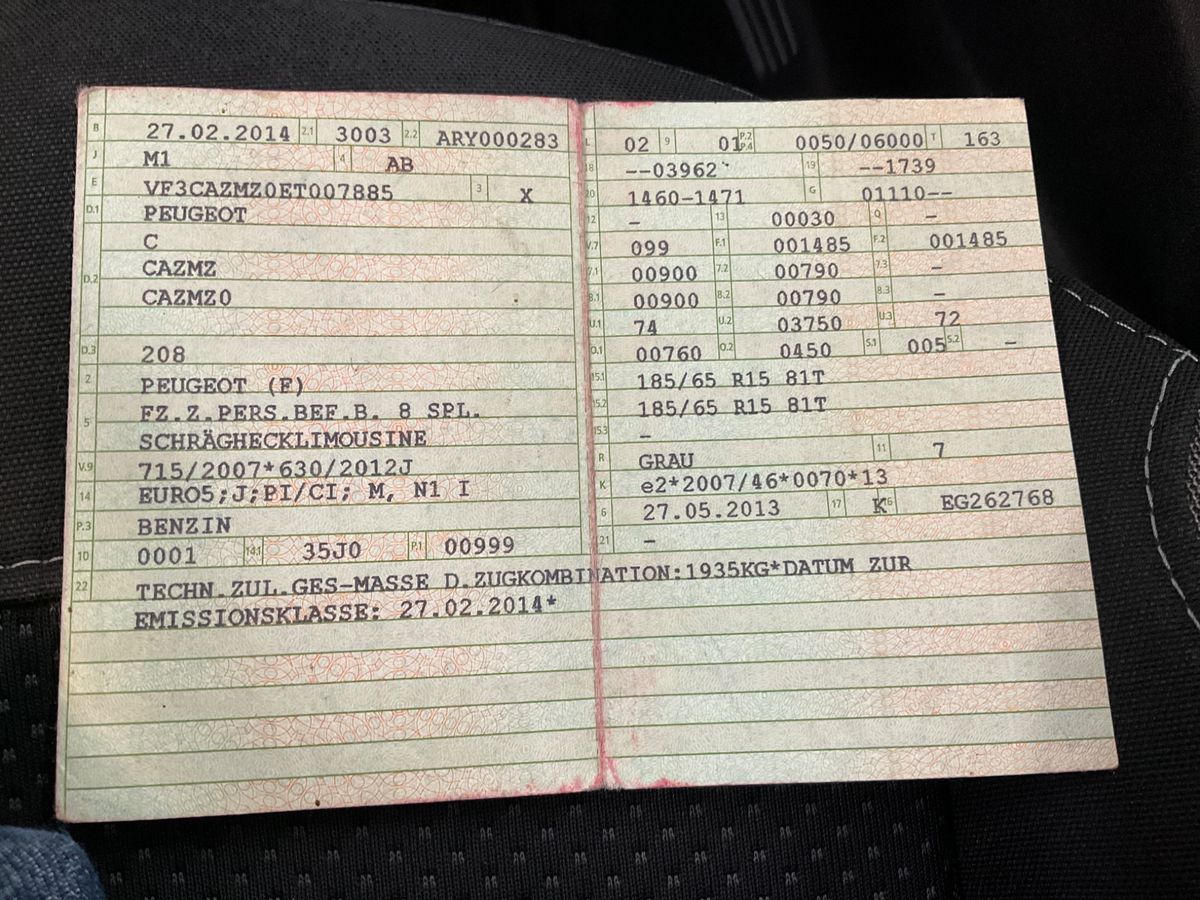 B 27.02.2014 2.1 3003 2.2 ARY000283
J M1 4 AB
E VF3CAZMZ0ET007885 3 X
D.1 PEUGEOT
C
D.2 CAZMZ
CAZMZ0
D.3 208
2 PEUGEOT (F)
5 FZ.Z.PERS.BEF.B. 8 SPL.
SCHRÄGHECKLIMOUSINE
V.9 715/2007*630/2012J
14 EURO5;J;PI/CI; M, N1 I
P.3 BENZIN
10 0001 14.1 35J0 P.1 00999
L 02 9 01 P.2 P.4 0050/06000 T 163
18 --03962 19 --1739
20 1460-1471 G 01110--
12 - 13 00030 Q -
V.7 099 F.1 001485 F.2 001485
7.1 00900 7.2 00790 7.3 -
8.1 00900 8.2 00790 8.3 -
U.1 74 U.2 03750 U.3 72
O.1 00760 O.2 0450 S.1 005 S.2 -
15.1 185/65 R15 81T
15.2 185/65 R15 81T
15.3 -
R GRAU 11 7
K e2*2007/46*0070*13
6 27.05.2013 17 K 16 EG262768
21 -
22 TECHN.ZUL.GES-MASSE D.ZUGKOMBINATION:1935KG*DATUM ZUR
EMISSIONSKLASSE: 27.02.2014*